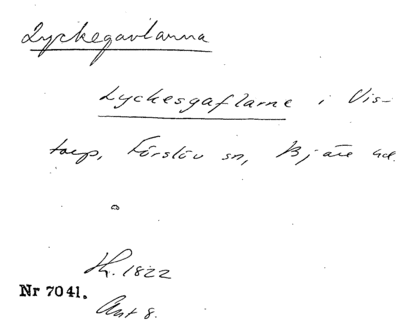 Lyckegavlarna
Lyckesgaflarne i Vis-
torp, Förslöv sn, Bjäre hd.
Lh. 1822
Nr 7041.
Akt 8.